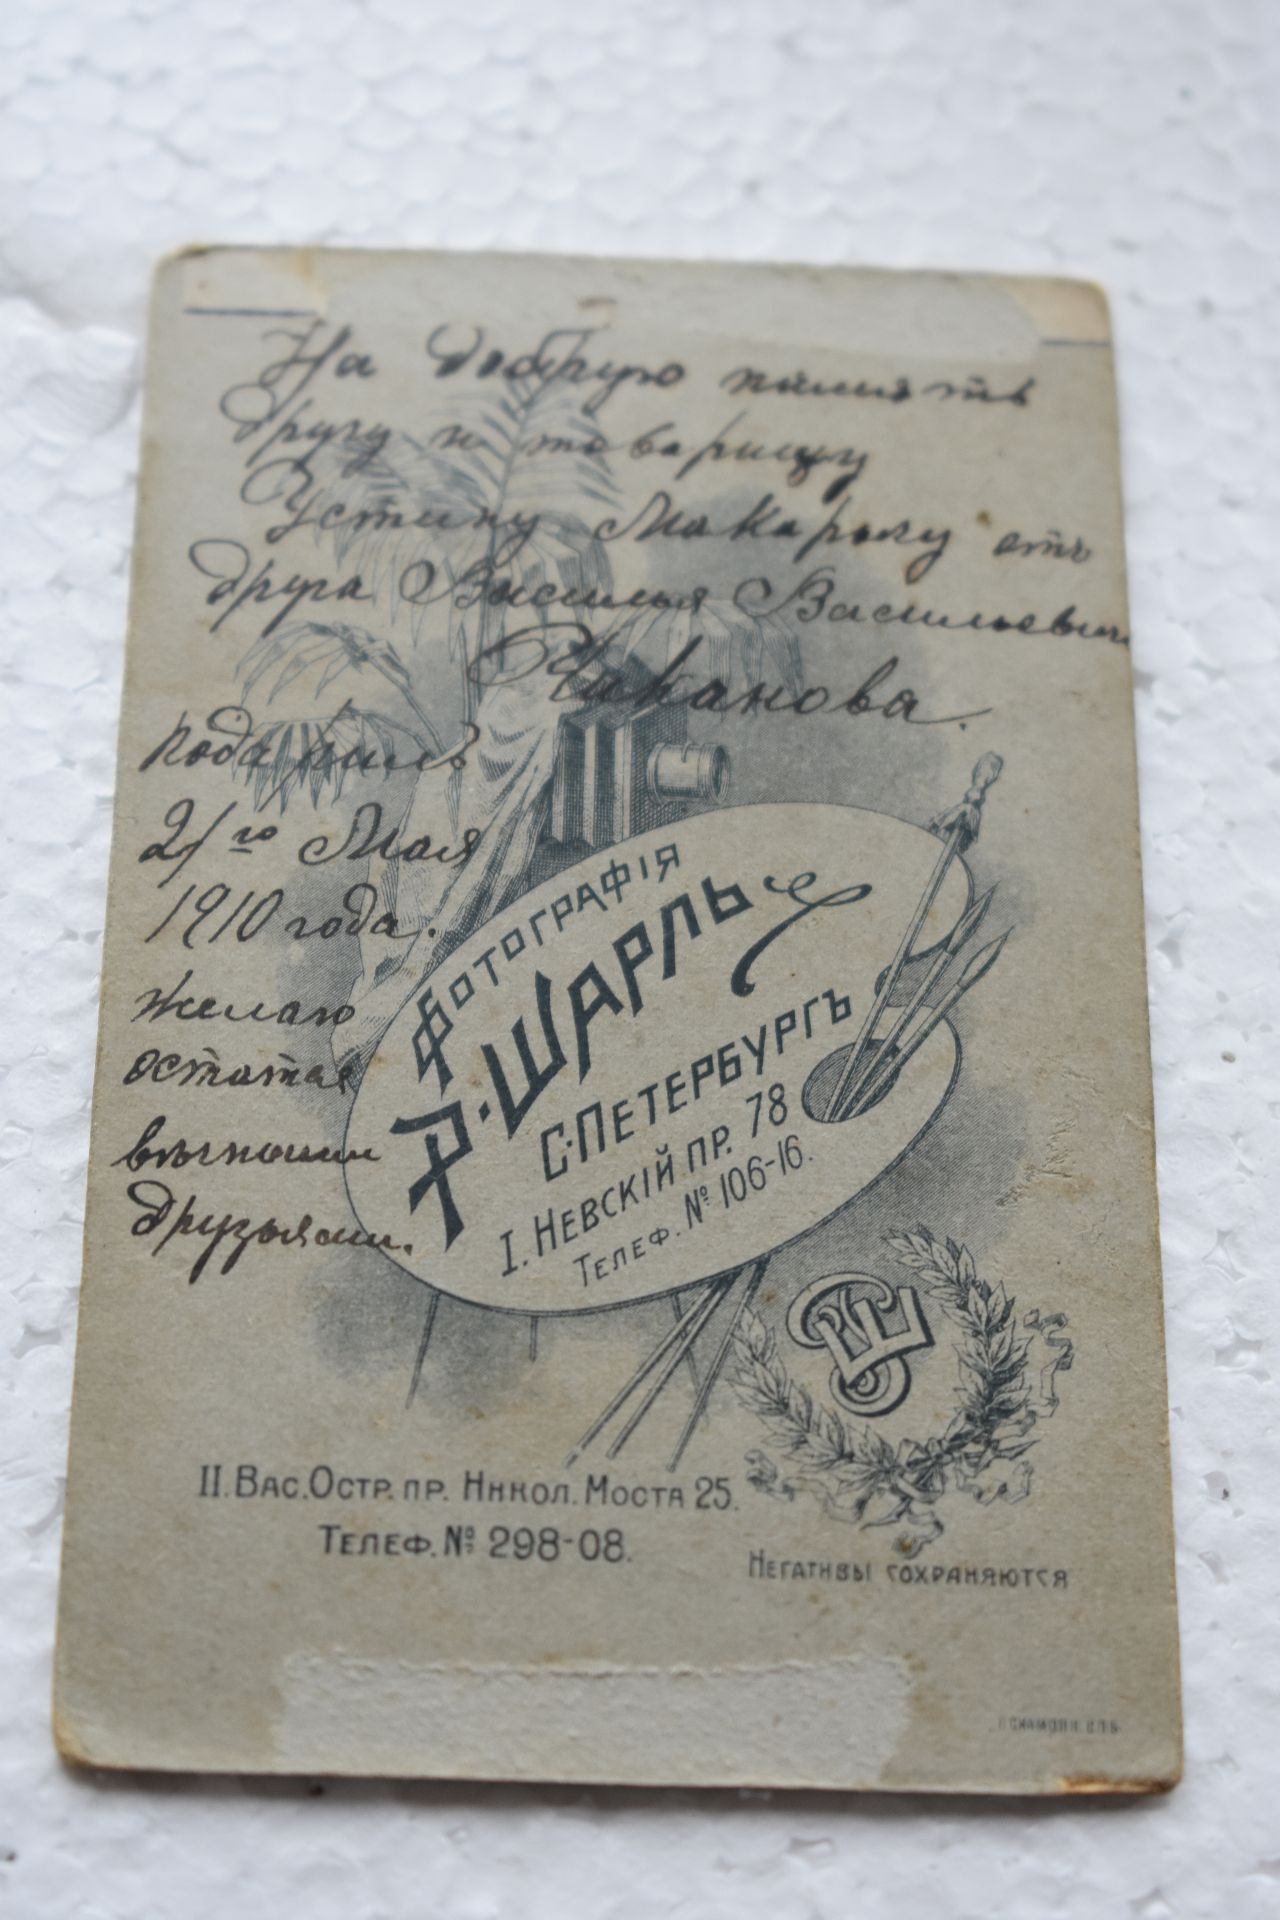 На добрую память
другу и товарищу
Устину Макарову отъ
друга Василья Васильевича
Чиканова.
подарилъ
21го Мая
1910 года.
желаю
остатся
вѣчными
друзьями.
Фотографія
Р. Шарль
С-Петербургъ
I. Невскій пр. 78
Телеф. № 106-16.
II. Вас. Остр. пр. Никол. Моста 25.
Телеф. № 298-08.
Негативы сохраняются